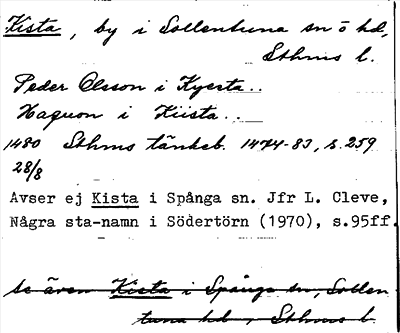 Kista, by i Sollentuna sn o hd,
Sthms l.
Peder Olsson i Kyesta..
Haquon i Kiista...
1480 Sthms tänkeb. 1474-83, s. 259
28/8
Avser ej Kista i Spånga sn. Jfr L. Cleve,
Några sta-namn i Södertörn (1970), s.95ff.
se även Kista i Spånga sn, Sollen
tuna hd, Sthms l.